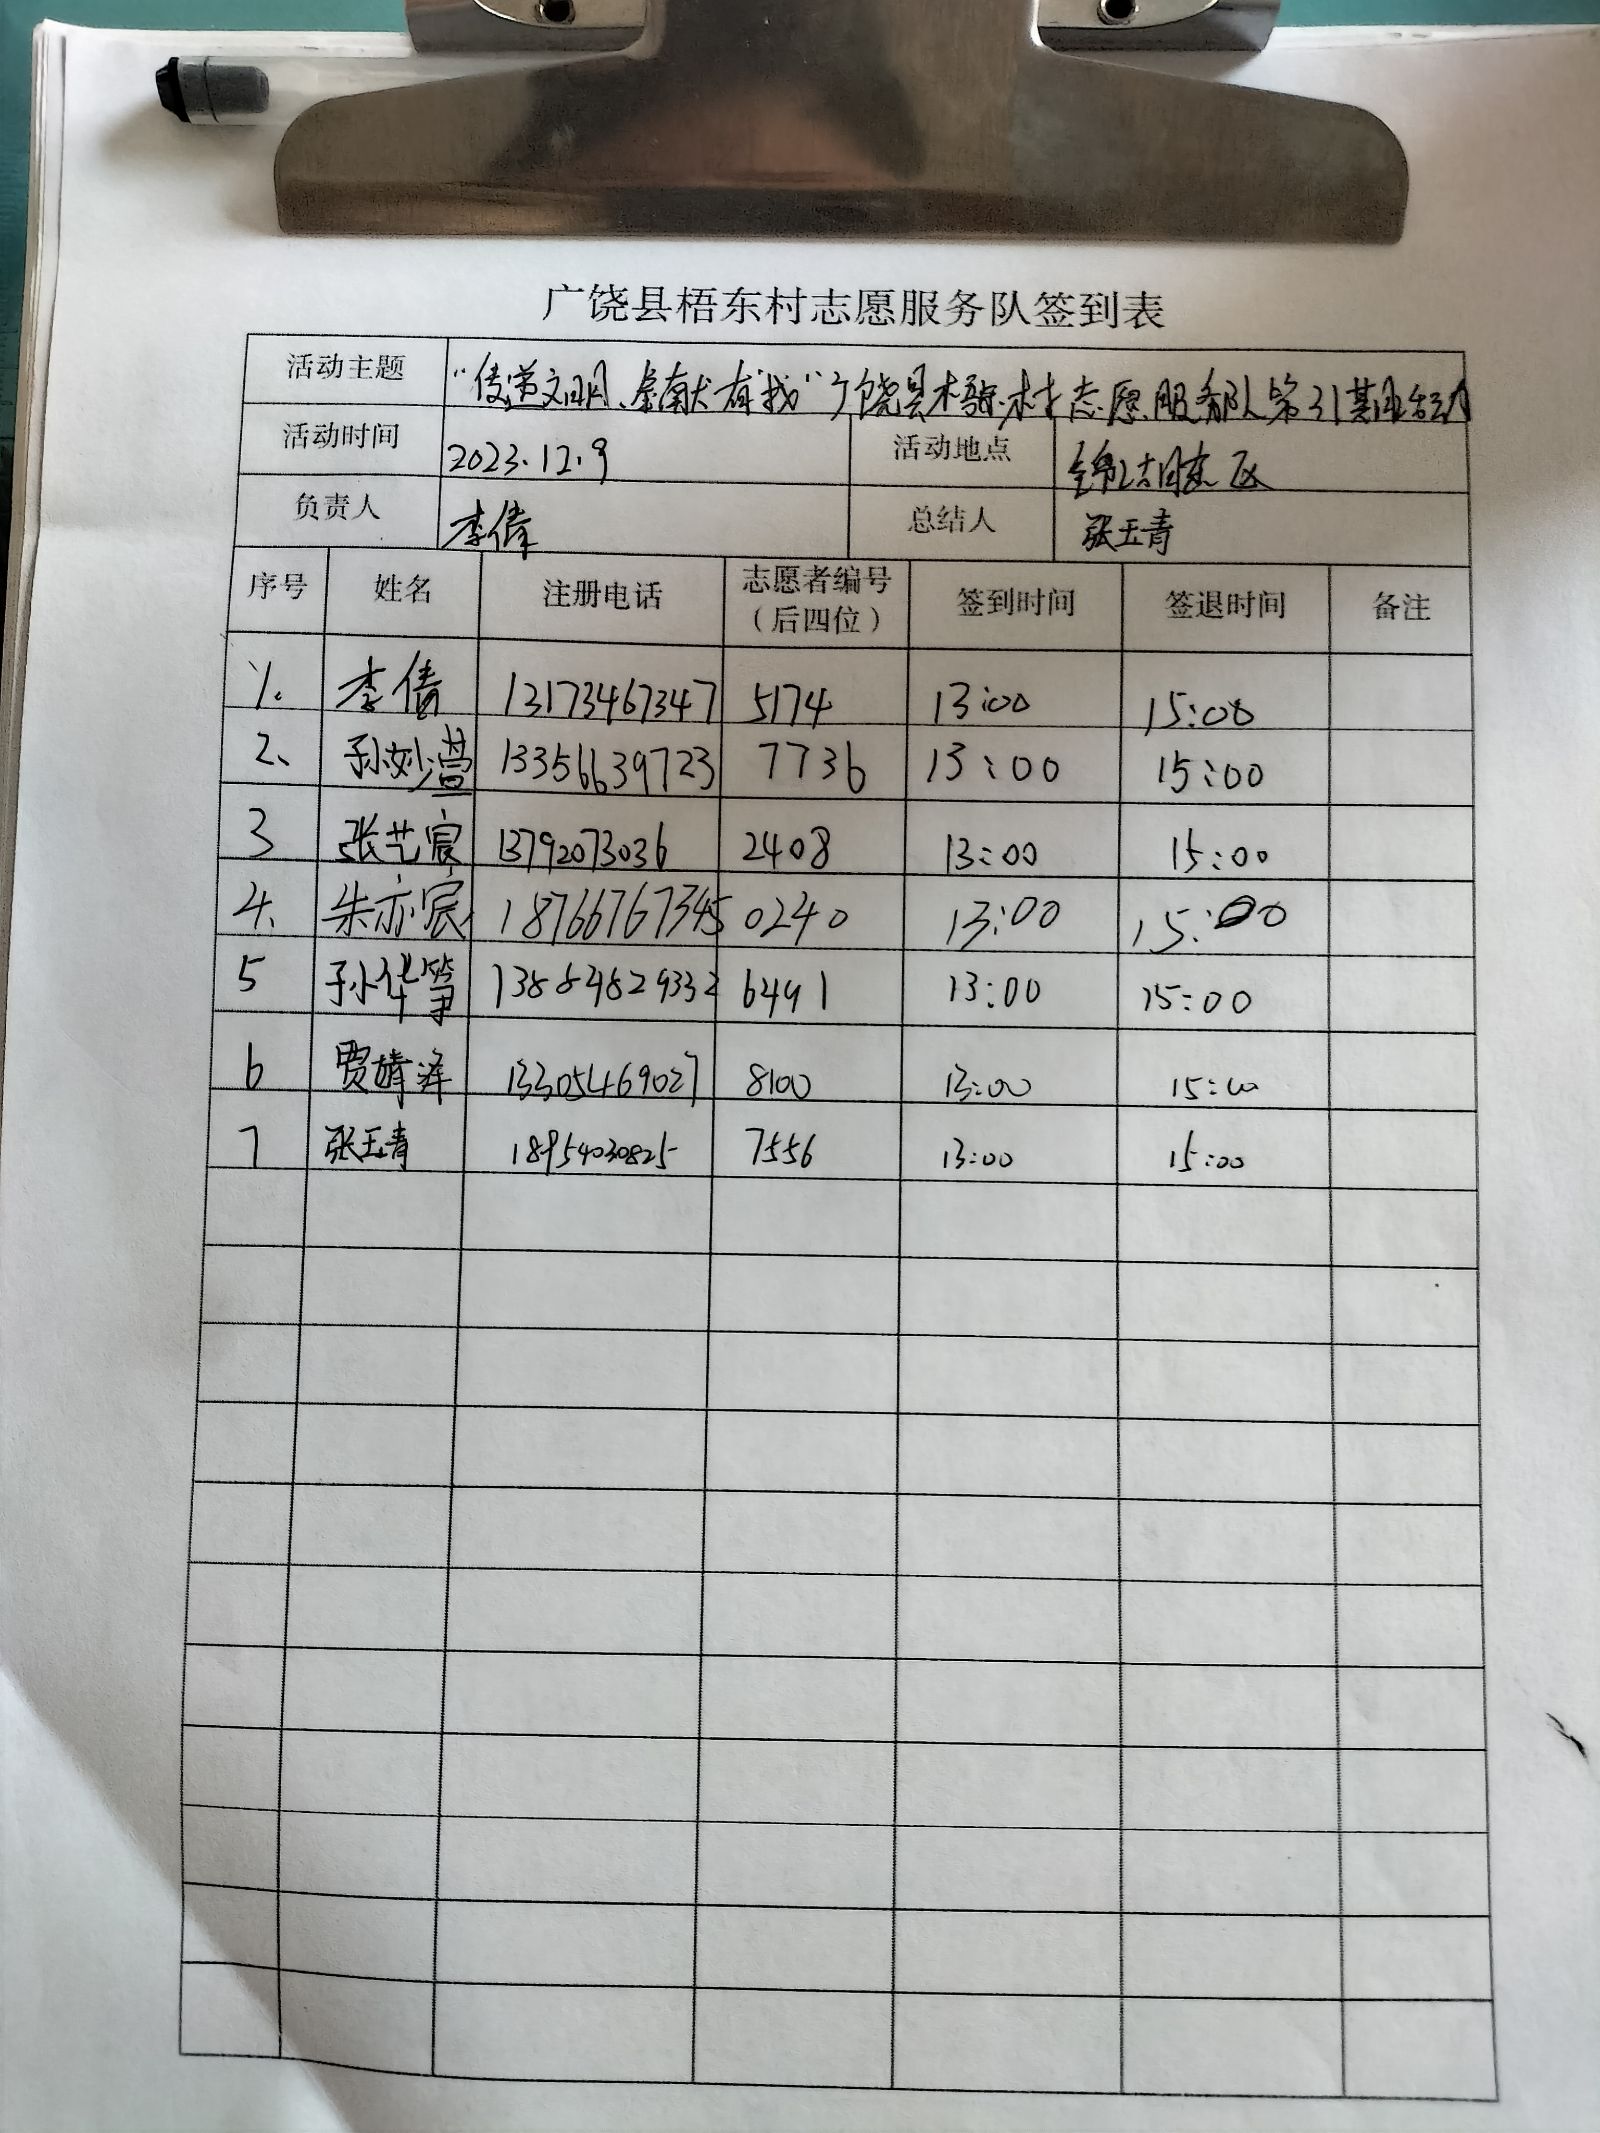 广饶县梧东村志愿服务队签到表
活动主题 “传递文明、奉献有我”广饶县梧东村志愿服务队第31期活动
活动时间 2023.12.9 活动地点 锦湖东区
负责人 李倩 总结人 张玉青
序号 姓名 注册电话 志愿者编号（后四位） 签到时间 签退时间 备注
1. 李倩 13173467347 5174 13:00 15:00
2、 孙妙萱 13356639723 7736 13:00 15:00
3 张艺宸 13792073036 2408 13:00 15:00
4. 朱亦宸 18766767345 0240 13:00 15:00
5 孙华筝 13884829332 6491 13:00 15:00
6 贾婧泽 13305469027 8100 13:00 15:00
7 张玉青 18954030825 7556 13:00 15:00